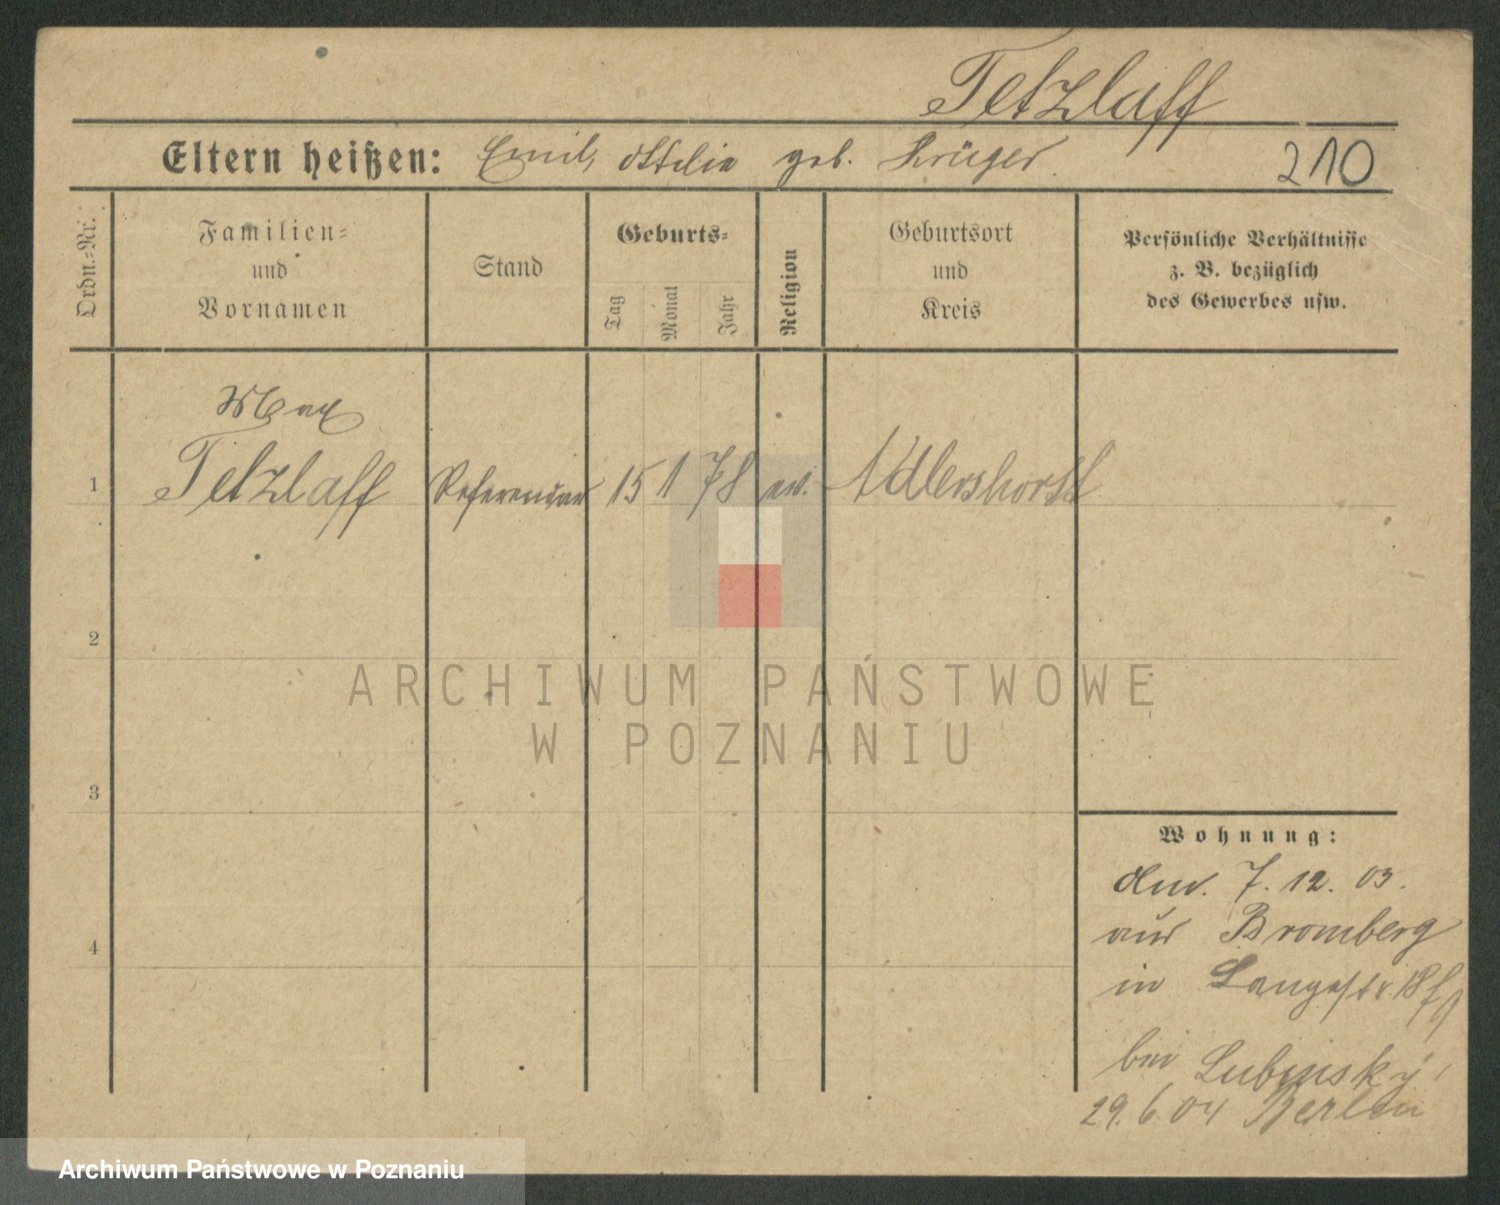 Tetzlaff
Eltern heißen: Emil, Ottilie geb. Krüger
210
Ordn.-Nr.
Familien-
und
Vornamen
Stand
Geburts-
Tag
Monat
Jahr
Religion
Geburtsort
und
Kreis
Persönliche Verhältnisse
z. B. bezüglich
des Gewerbes usw.
Max
1 Tetzlaff Referendar 15 1 78 ev. Adlershorst
2
3
4
ARCHIWUM PAŃSTWOWE
W POZNANIU
Wohnung:
7. 12. 03.
aus Bromberg
in Langestr. 18
bei Lubinsky
29. 6. 04 Berlin
Archiwum Państwowe w Poznaniu